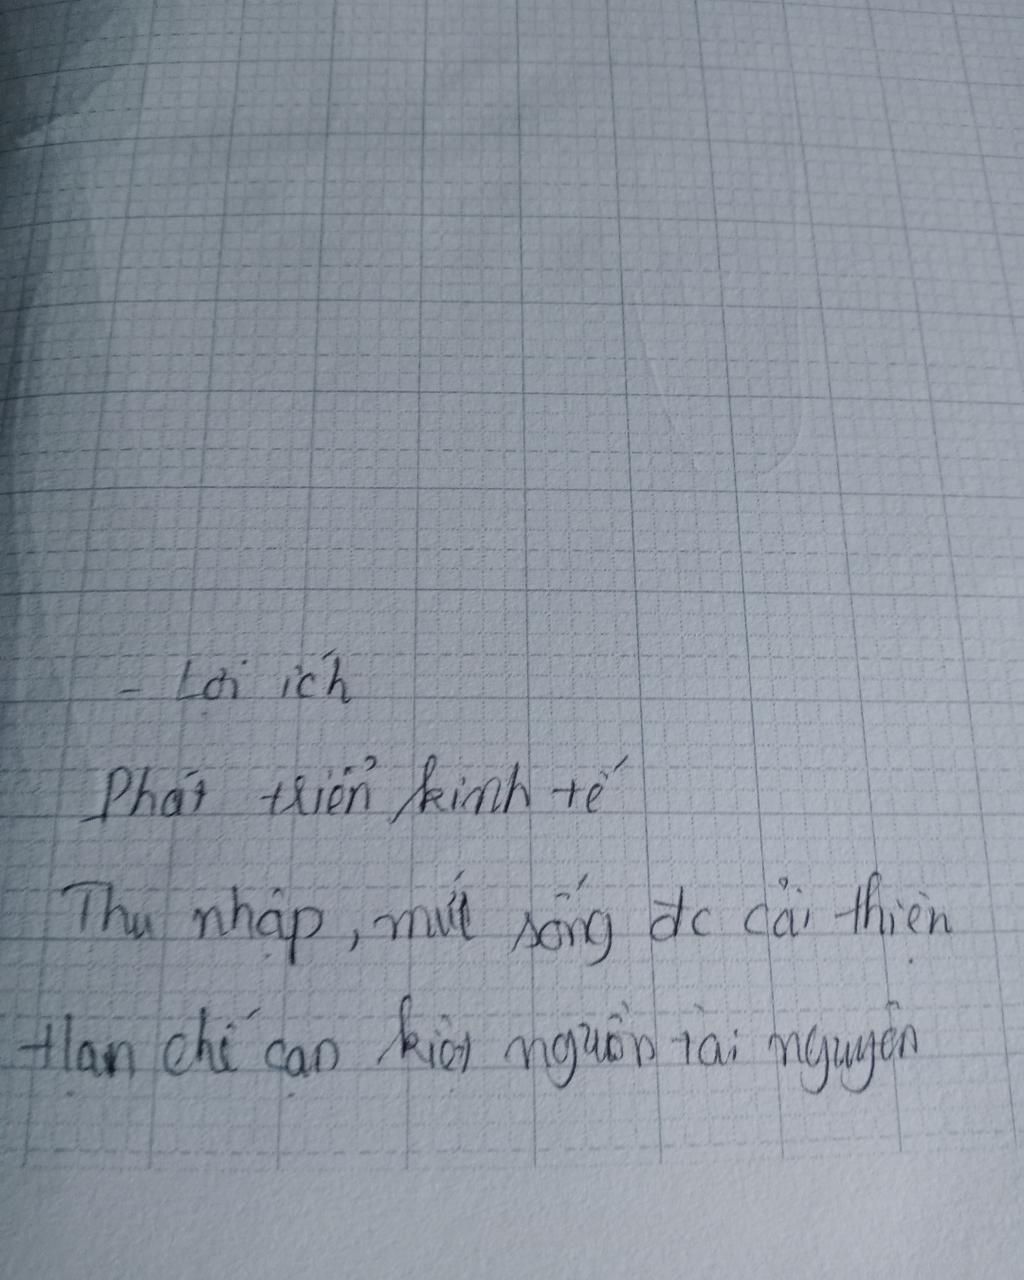 - Lợi ích
Phát triển kinh tế
Thu nhập, mức sống đc cải thiện
Hạn chế cạn kiệt nguồn tài nguyên